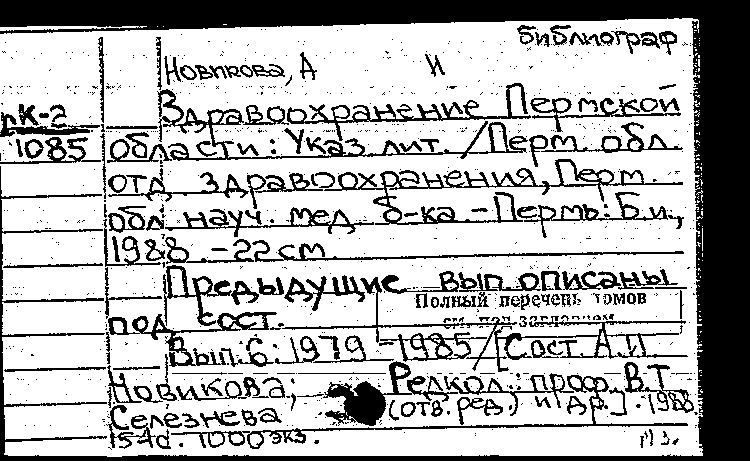 библиограф
Новикова, А И
Здравоохранение Пермской
рК-2
1085 области: Указ. лит. / Перм. обл.
отд. здравоохранения, Перм.
обл. науч. мед. б-ка. - Пермь: Б.и.,
1988. - 22 см.
Предыдущие вып. описаны
под сост.
Полный перечень томов
см. под заглавием
Вып. 6: 1979 - 1985 / [Сост. А.И.
Новикова; Редкол.: проф. В.Т.
Селезнева (отв. ред.) и др.]. 1988
154 с. 1000 экз.